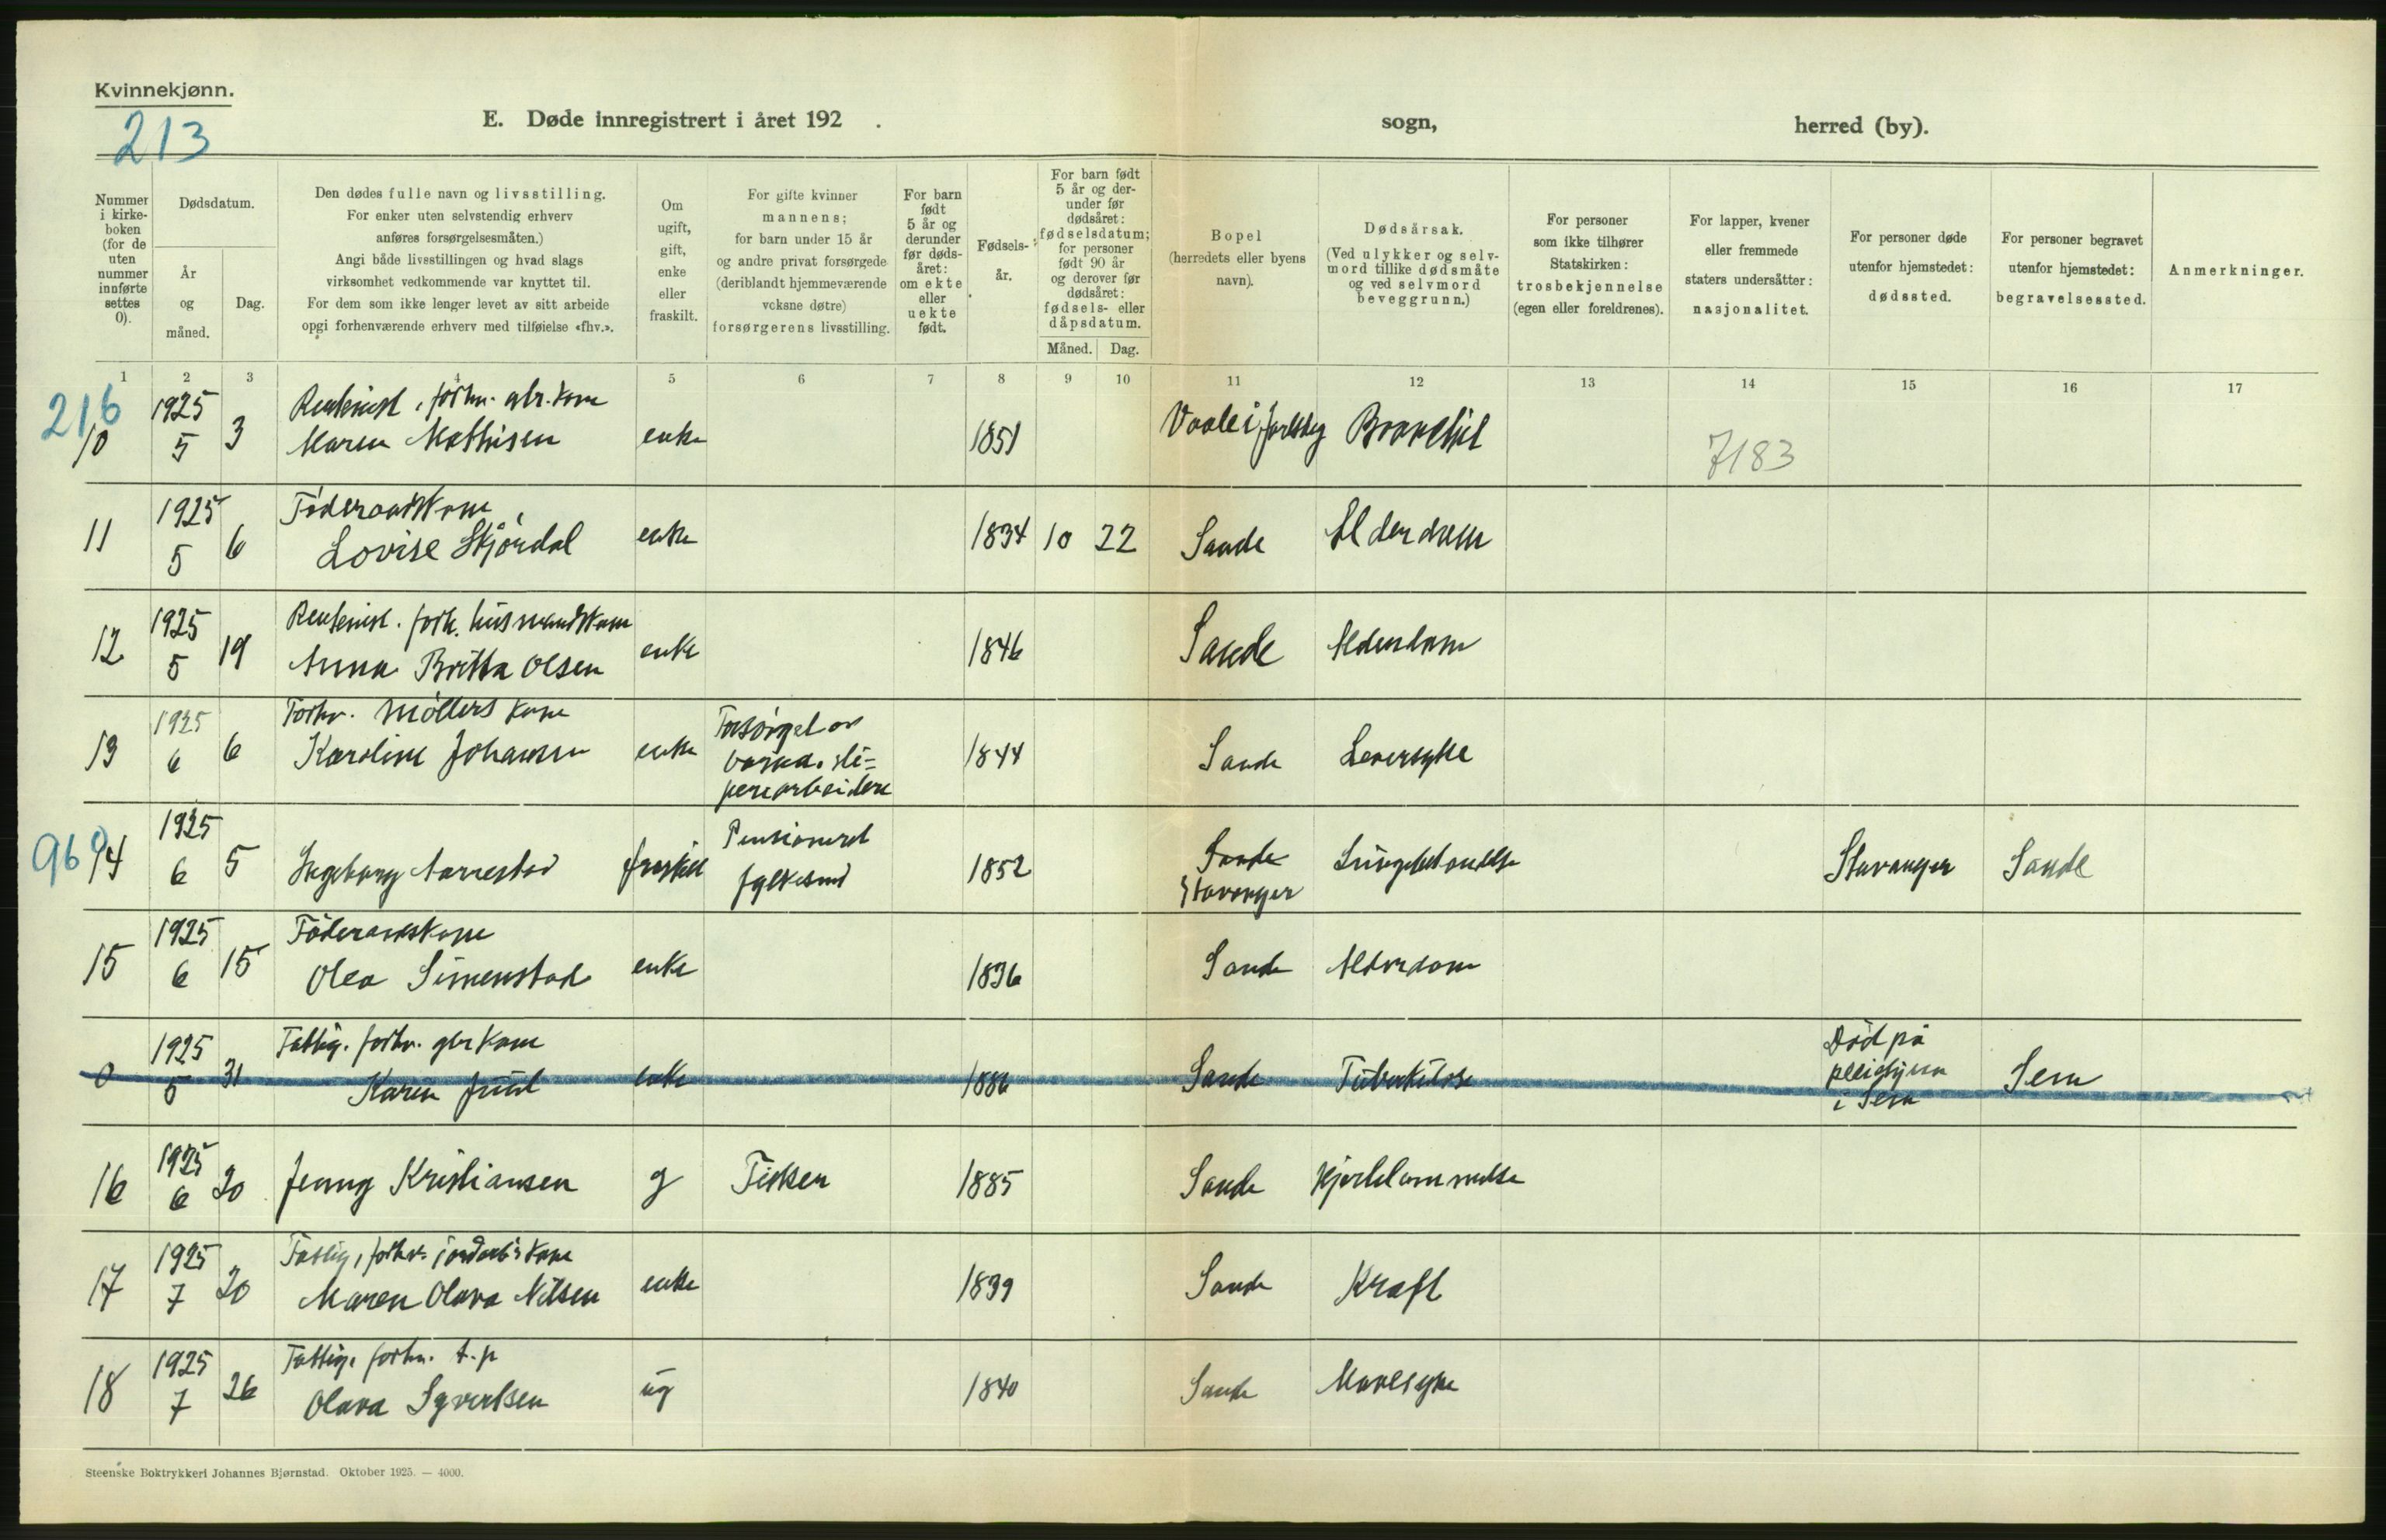 Kvinnekjønn.
213
E. Døde innregistrert i året 192 .
sogn,
herred (by).
Nummer
i kirke-
boken
(for de
uten
nummer
innførte
settes
0).
Dødsdatum.
År
og
måned.
Dag.
Den dødes fulle navn og livsstilling.
For enker uten selvstendig erhverv
anføres forsørgelsesmåten.)
Angi både livsstillingen og hvad slags
virksomhet vedkommende var knyttet til.
For dem som ikke lenger levet av sitt arbeide
opgi forhenværende erhverv med tilføielse «fhv.».
Om
ugift,
gift,
enke
eller
fraskilt.
For gifte kvinner
mannens;
for barn under 15 år
og andre privat forsørgede
(deriblandt hjemmeværende
voksne døtre)
forsørgerens livsstilling.
For barn
født
5 år og
derunder
før døds-
året:
om ekte
eller
uekte
født.
Fødsels-
år.
For barn født
5 år og der-
under før
dødsåret:
fødselsdatum;
for personer
født 90 år
og derover før
dødsåret:
fødsels- eller
dåpsdatum.
Måned. Dag.
Bopel
(herredets eller byens
navn).
Dødsårsak.
(Ved ulykker og selv-
mord tillike dødsmåte
og ved selvmord
beveggrunn.)
For personer
som ikke tilhører
Statskirken:
trosbekjennelse
(egen eller foreldrenes).
For lapper, kvener
eller fremmede
staters undersåtter:
nasjonalitet.
For personer døde
utenfor hjemstedet:
dødssted.
For personer begravet
utenfor hjemstedet:
begravelsessted.
Anmerkninger.
1 2 3 4 5 6 7 8 9 10 11 12 13 14 15 16 17
216
1925 forhv. gbr. kone
10 5 3 Maren Mathisen enke 1851 Vaale i Jarlsberg
7183
1925 Føderaadskone,
11 5 6 Lovise Skjørdal enke 1834 10 22 Sande Alderdom
1925 forh. husmandskone
12 5 19 Anna Britta Olsen enke 1846 Sande Alderdom
1925 Forhv. møllers kone Forsørget av
13 6 6 Karoline Johansen enke 1844 Sande Leversyke
1925 Pensioneret
960
14 6 5 Ingeborg Aarrestad fraskilt 1852 Sande Stavanger Sande
Stavanger
1925 Føderaadskone
15 6 15 Olea Simenstad enke 1836 Sande Alderdom
1925 Fattig. forhv. gbr kone Død på
0 5 31 Karen Juul enke 1886 Sande Tuberkulose pleiehjem Sem
i Sem
1925
16 6 20 Jenny Kristiansen g Fisker 1885 Sande Hjertelammelse
1925 Fattig, forhv. jordarb's kone
17 7 20 Maren Olava Nilsen enke 1839 Sande Kræft
1925 Fattig. forhv. t.p
18 7 26 Olava Syvertsen ug 1840 Sande Mavesyke
Steenske Boktrykkeri Johannes Bjørnstad. Oktober 1925. — 4000.